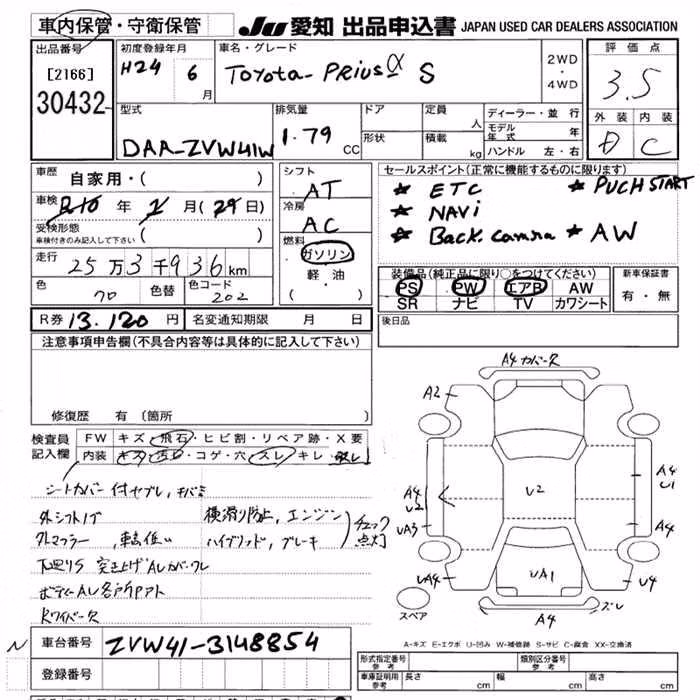 車内保管・守衛保管
JU 愛知 出品申込書 JAPAN USED CAR DEALERS ASSOCIATION
出品番号
[2166]
30432
初度登録年月
H24 6月
車名・グレード
Toyota- PRiUS α S
2WD
・
4WD
評価点
3.5
外装 内装
D C
型式
DAA-ZVW41W
排気量
1.79 CC
ドア
形状
定員 人
積載 kg
ディーラー・並行
モデル年式 年
ハンドル 左・右
車歴 自家用・( )
車検 R10年 2月(29日)
受検形態
車検付きのみ記入して下さい ( )
走行
25万3千936km
色 色替 色コード
70 202
シフト
AT
冷房
AC
燃料
ガソリン
軽・油
( ・ )
セールスポイント(正常に機能するものに限ります)
★ ETC ★ PUCH START
★ NAVi
★ Back. camra ★ AW
装備品(純正品に限り○をつけてください)
PS PW エアB AW
SR ナビ TV カワシート
新車保証書
有・無
R券 13.120円 名変通知期限 月 日
後日品
注意事項申告欄(不具合内容等は具体的に記入して下さい)
修復歴 有(箇所
検査員
記入欄
FW キズ・飛石・ヒビ割・リペア跡・X要
内装 キズ・汚レ・コゲ・穴・スレ・キレ・
シートカバー付
外シフトノブ 横滑り防止、エンジン
外マフラー、車高低い ハイブリッド、ブレーキ
チェック
点灯
下廻りS 突き上げ
ボディーAU各所
A4 カバー欠
A2
A4
U2
UA3
UA4
U2
UA1
A4
U1
A4
U4
A4
ズレ
スペア
A-キズ E-エクボ U-凹み W-補修跡 S-サビ C-腐食 XX-交換済
N
車台番号 ZVW41-3148854
登録番号
形式指定番号
参考
類別区分番号
参考
車庫証明用
参考
長さ cm 幅 cm 高さ cm